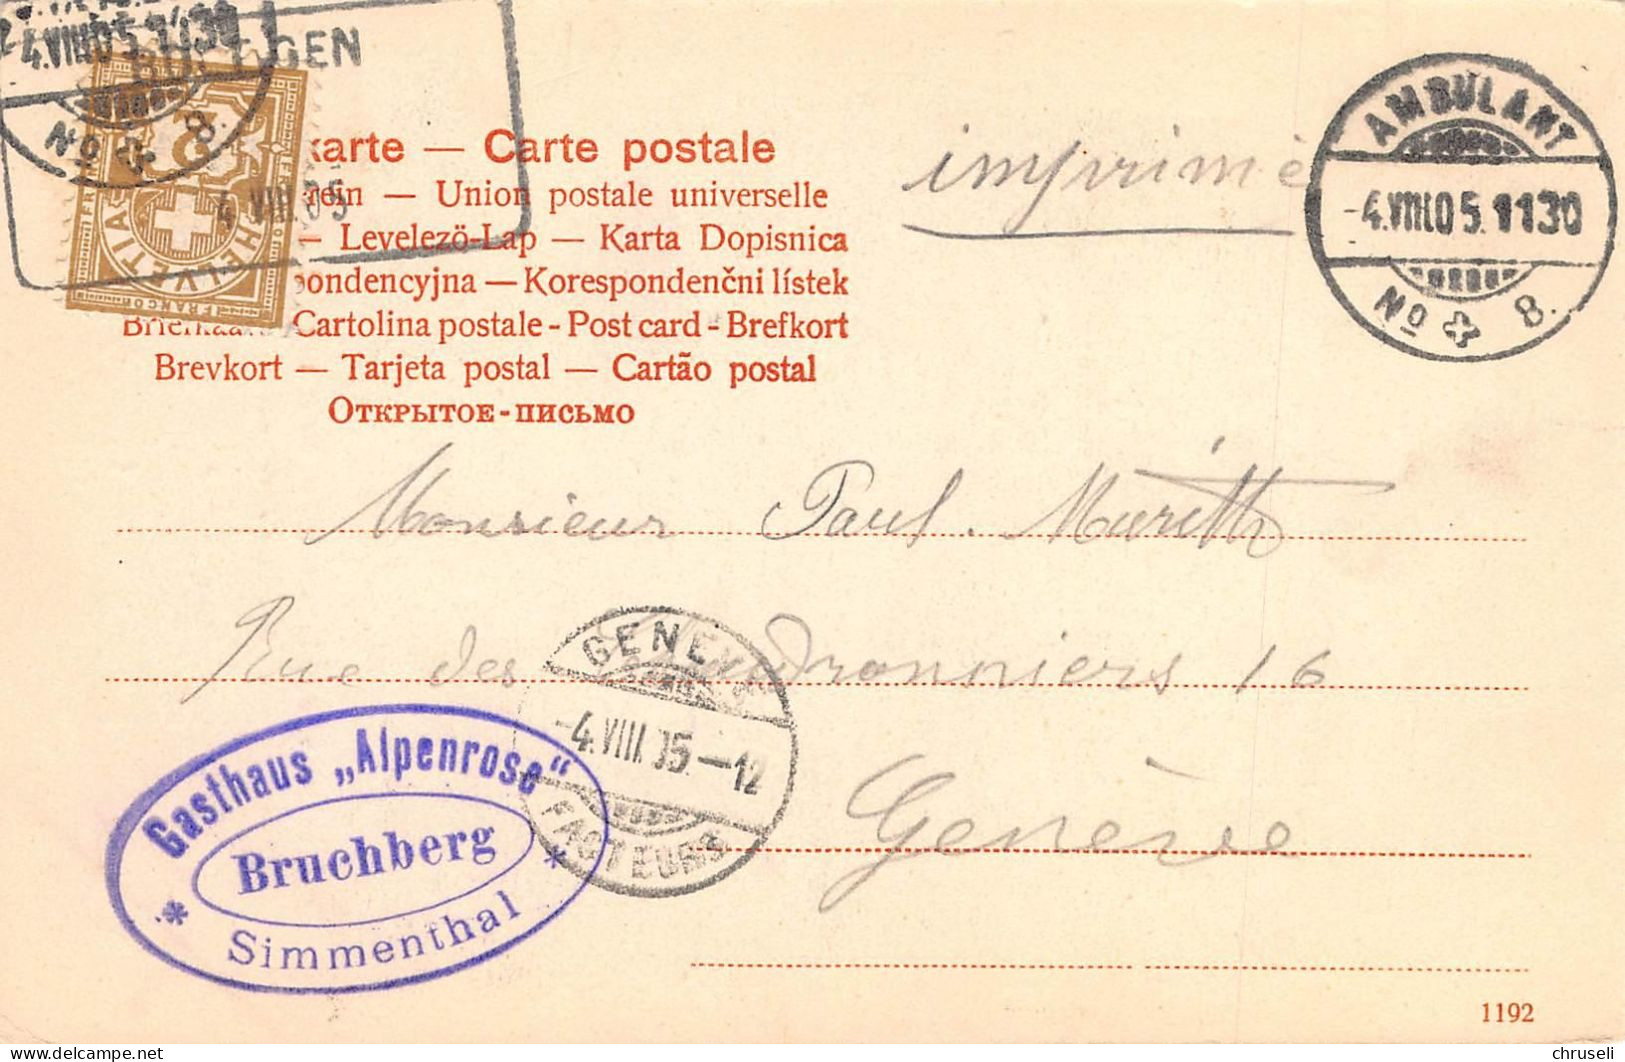 4.VIII.05.1130
No 8.
4.VIII.05
HELVETIA
FRANCO
2
karte — Carte postale
— Union postale universelle
— Levelező-Lap — Karta Dopisnica
pondencyjna — Korespondenčni lístek
Cartolina postale - Post card - Brefkort
Brevkort — Tarjeta postal — Cartão postal
Открытое-письмо
imprimé
AMBULANT
-4.VIII.05.1130
No 8.
Monsieur Paul. Murith
Rue des Chaudronniers 16
Genève
GENÈVE
-4.VIII.05.-12
FACTEURS
Gasthaus „Alpenrose“
Bruchberg
* Simmenthal *
1192
delcampe.net
chruseli